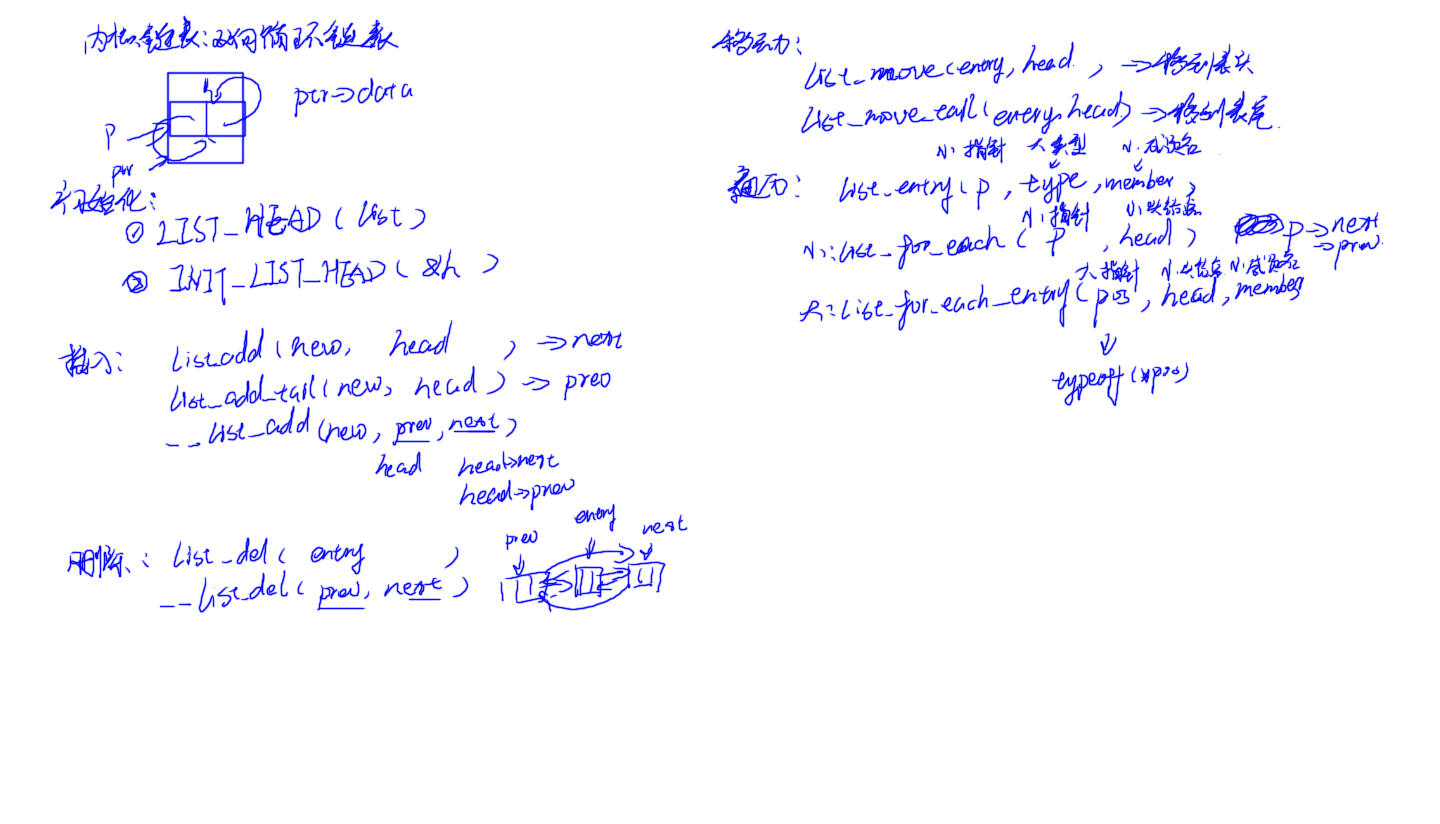 内核链表:双向循环链表
h
ptr->data
P
ptr
初始化:
① LIST_HEAD(list)
② INIT_LIST_HEAD(&h )
插入: list_add(new, head ) -> next
list_add_tail(new, head) -> prev
__list_add(new, prev, next)
head head->next
head->prev
删除: list_del( entry )
__list_del( prev, next )
prev entry next
移动:
list_move(entry, head ) ->移到表头
list_move_tail(entry, head) ->移到表尾
小指针 大类型 小成员名
遍历: list_entry(p, type, member)
小指针 小头结点
小:list_for_each( p , head ) p->next
->prev
大指针 小头结点 小成员名
大:list_for_each_entry(pos, head, member
typeof(*pos)